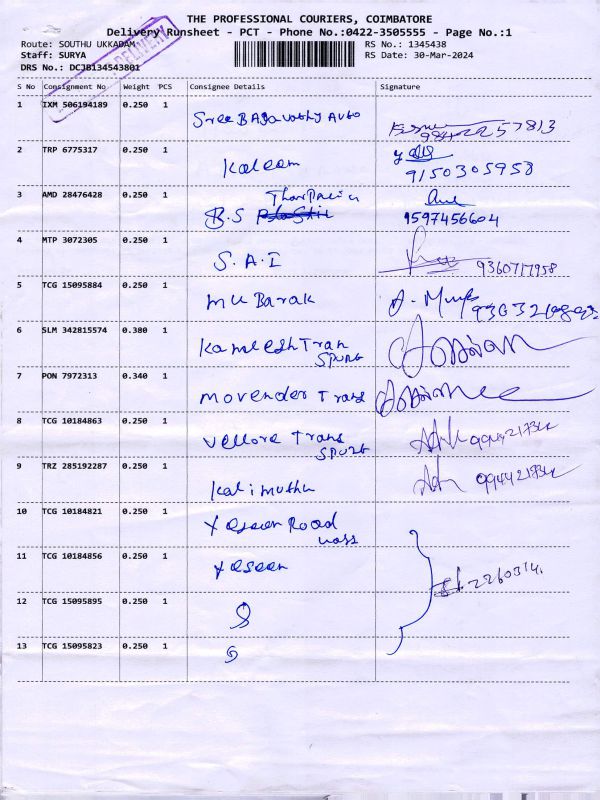 THE PROFESSIONAL COURIERS, COIMBATORE
Delivery Runsheet - PCT - Phone No.:0422-3505555 - Page No.:1
Route: SOUTHU UKKADAM
RS No.: 1345438
Staff: SURYA
RS Date: 30-Mar-2024
DRS No.: DCJB134543801
DELIVERY
S No Consignment No Weight PCS Consignee Details Signature
1 IXM 506194189 0.250 1 Sree BAgavathy Auto
2 TRP 6775317 0.250 1 Kaleem
9150305958
3 AMD 28476428 0.250 1
B.S
9597456604
4 MTP 3072305 0.250 1 S.A.I 9360717958
5 TCG 15095884 0.250 1 Mubarak
6 SLM 342815574 0.380 1 Kamlesh Tran
7 PON 7972313 0.340 1 Movender Trans
8 TCG 10184863 0.250 1 Vellore Trans
9 TRZ 285192287 0.250 1 Kalimuthu
10 TCG 10184821 0.250 1 Yaseen Road
11 TCG 10184856 0.250 1 Yaseen
12 TCG 15095895 0.250 1
13 TCG 15095823 0.250 1